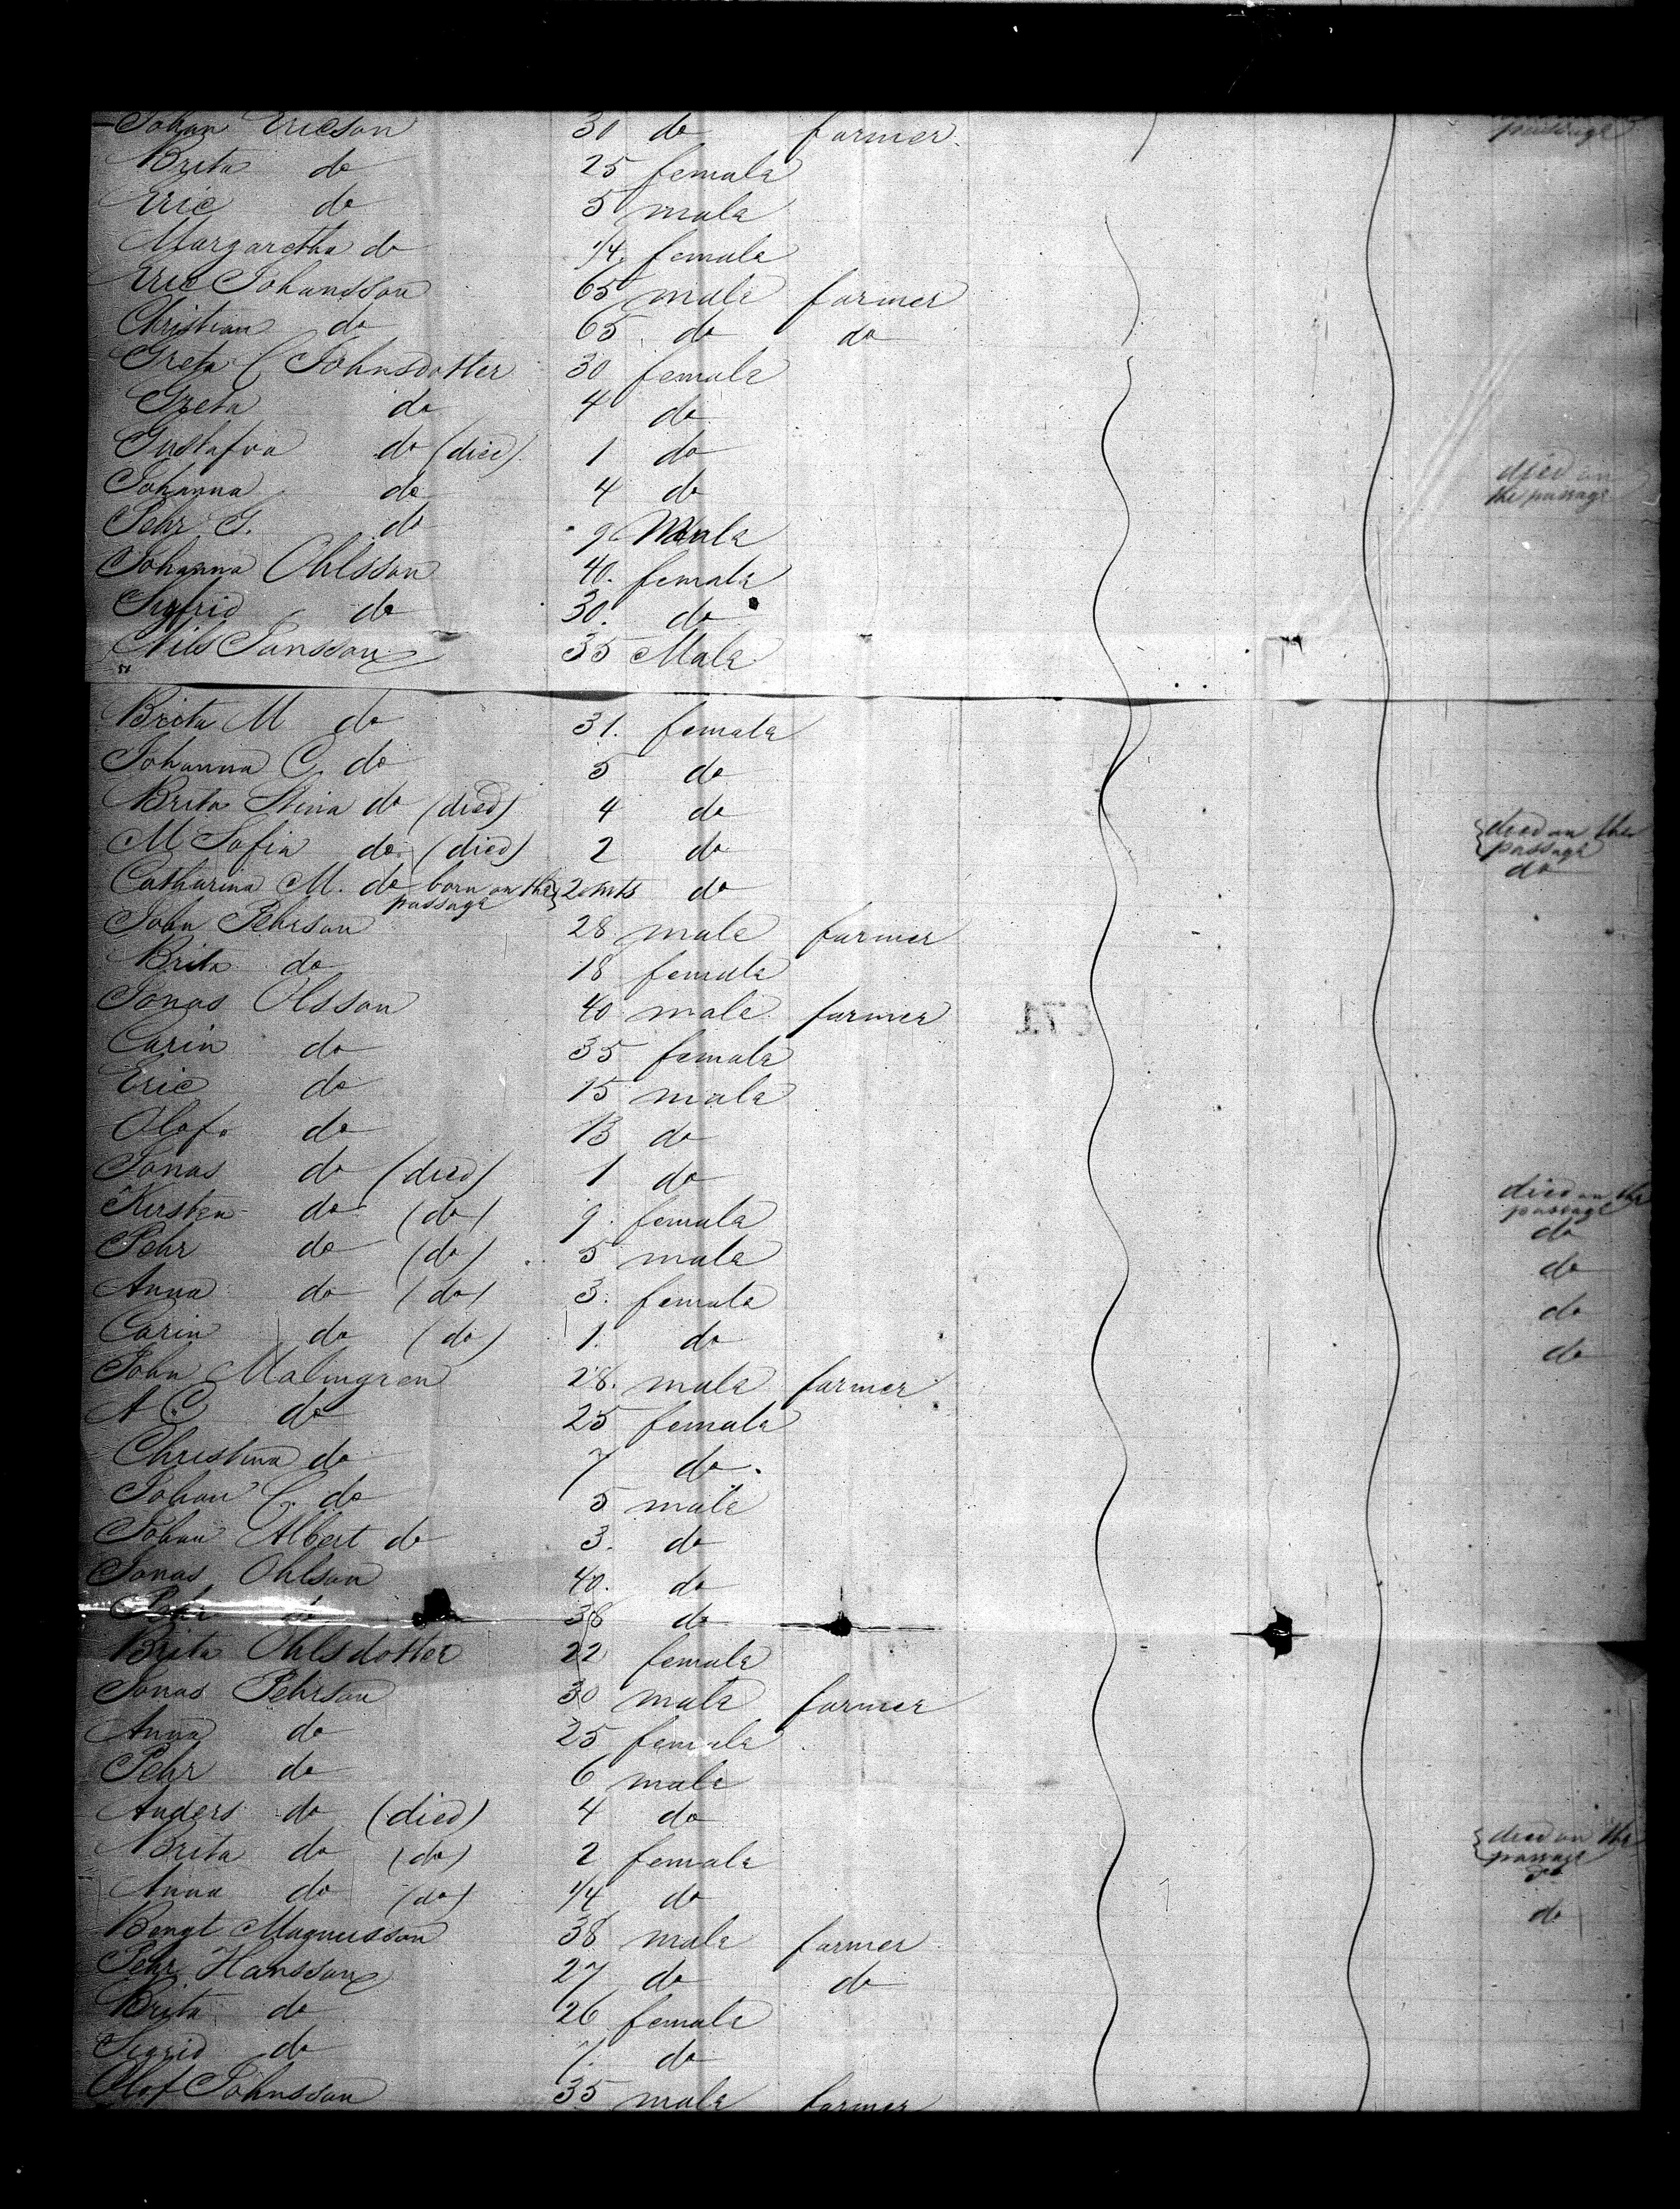 passage
Johan Ericson 30 do farmer.
Brita do 25 female
Eric do 5 male
Margaretha do 1/4 female
Eric Johansson 65 male farmer
Christian do 65 do do
Greta C Johnsdotter 30 female
Greta do 4 do
Gustafva do (died) 1 do died on
the passage
Johanna do 4 do
Pehr G. do 9 Male
Johanna Ohlsson 40. female
Sigfrid do 30. do
Nils Jansson 35 Male
"
Brita M do 31. female
Johanna C. do 5 do
Brita Stina do (died) 4 do died on the
passage
M Sofia do (died) 2 do do
Catharina M. do born on the passage 2 mts do
John Pehrson 28 male farmer
Brita do 18 female
Jonas Olsson 40 male farmer
Carin do 35 female
Eric do 15 male
Olof do 13 do
Jonas do (died) 1 do died on the
passage
Kersten do (do) 9. female do
Pehr do (do) 5 male do
Anna do (do) 3. female do
Carin do (do) 1. do do
John Malmgren 28. male farmer
A C do 25 female
Christina do 7 do.
Johan C. do 5 male
Johan Albert do 3. do
Jonas Ohlson 40. do
Pehr do 38 do
Brita Ohlsdotter 22 female
Jonas Pehrson 30 male farmer
Anna do 25 female
Pehr do 6 male
Anders do (died) 4 do died on the
passage
Brita do (do) 2 female do
Anna do (do) 1/4 do do
Bengt Magnusson 38 male farmer
Pehr Hansson 27 do do
Brita do 26 female
Sigrid do 7. do
Olof Johnsson 35 male farmer